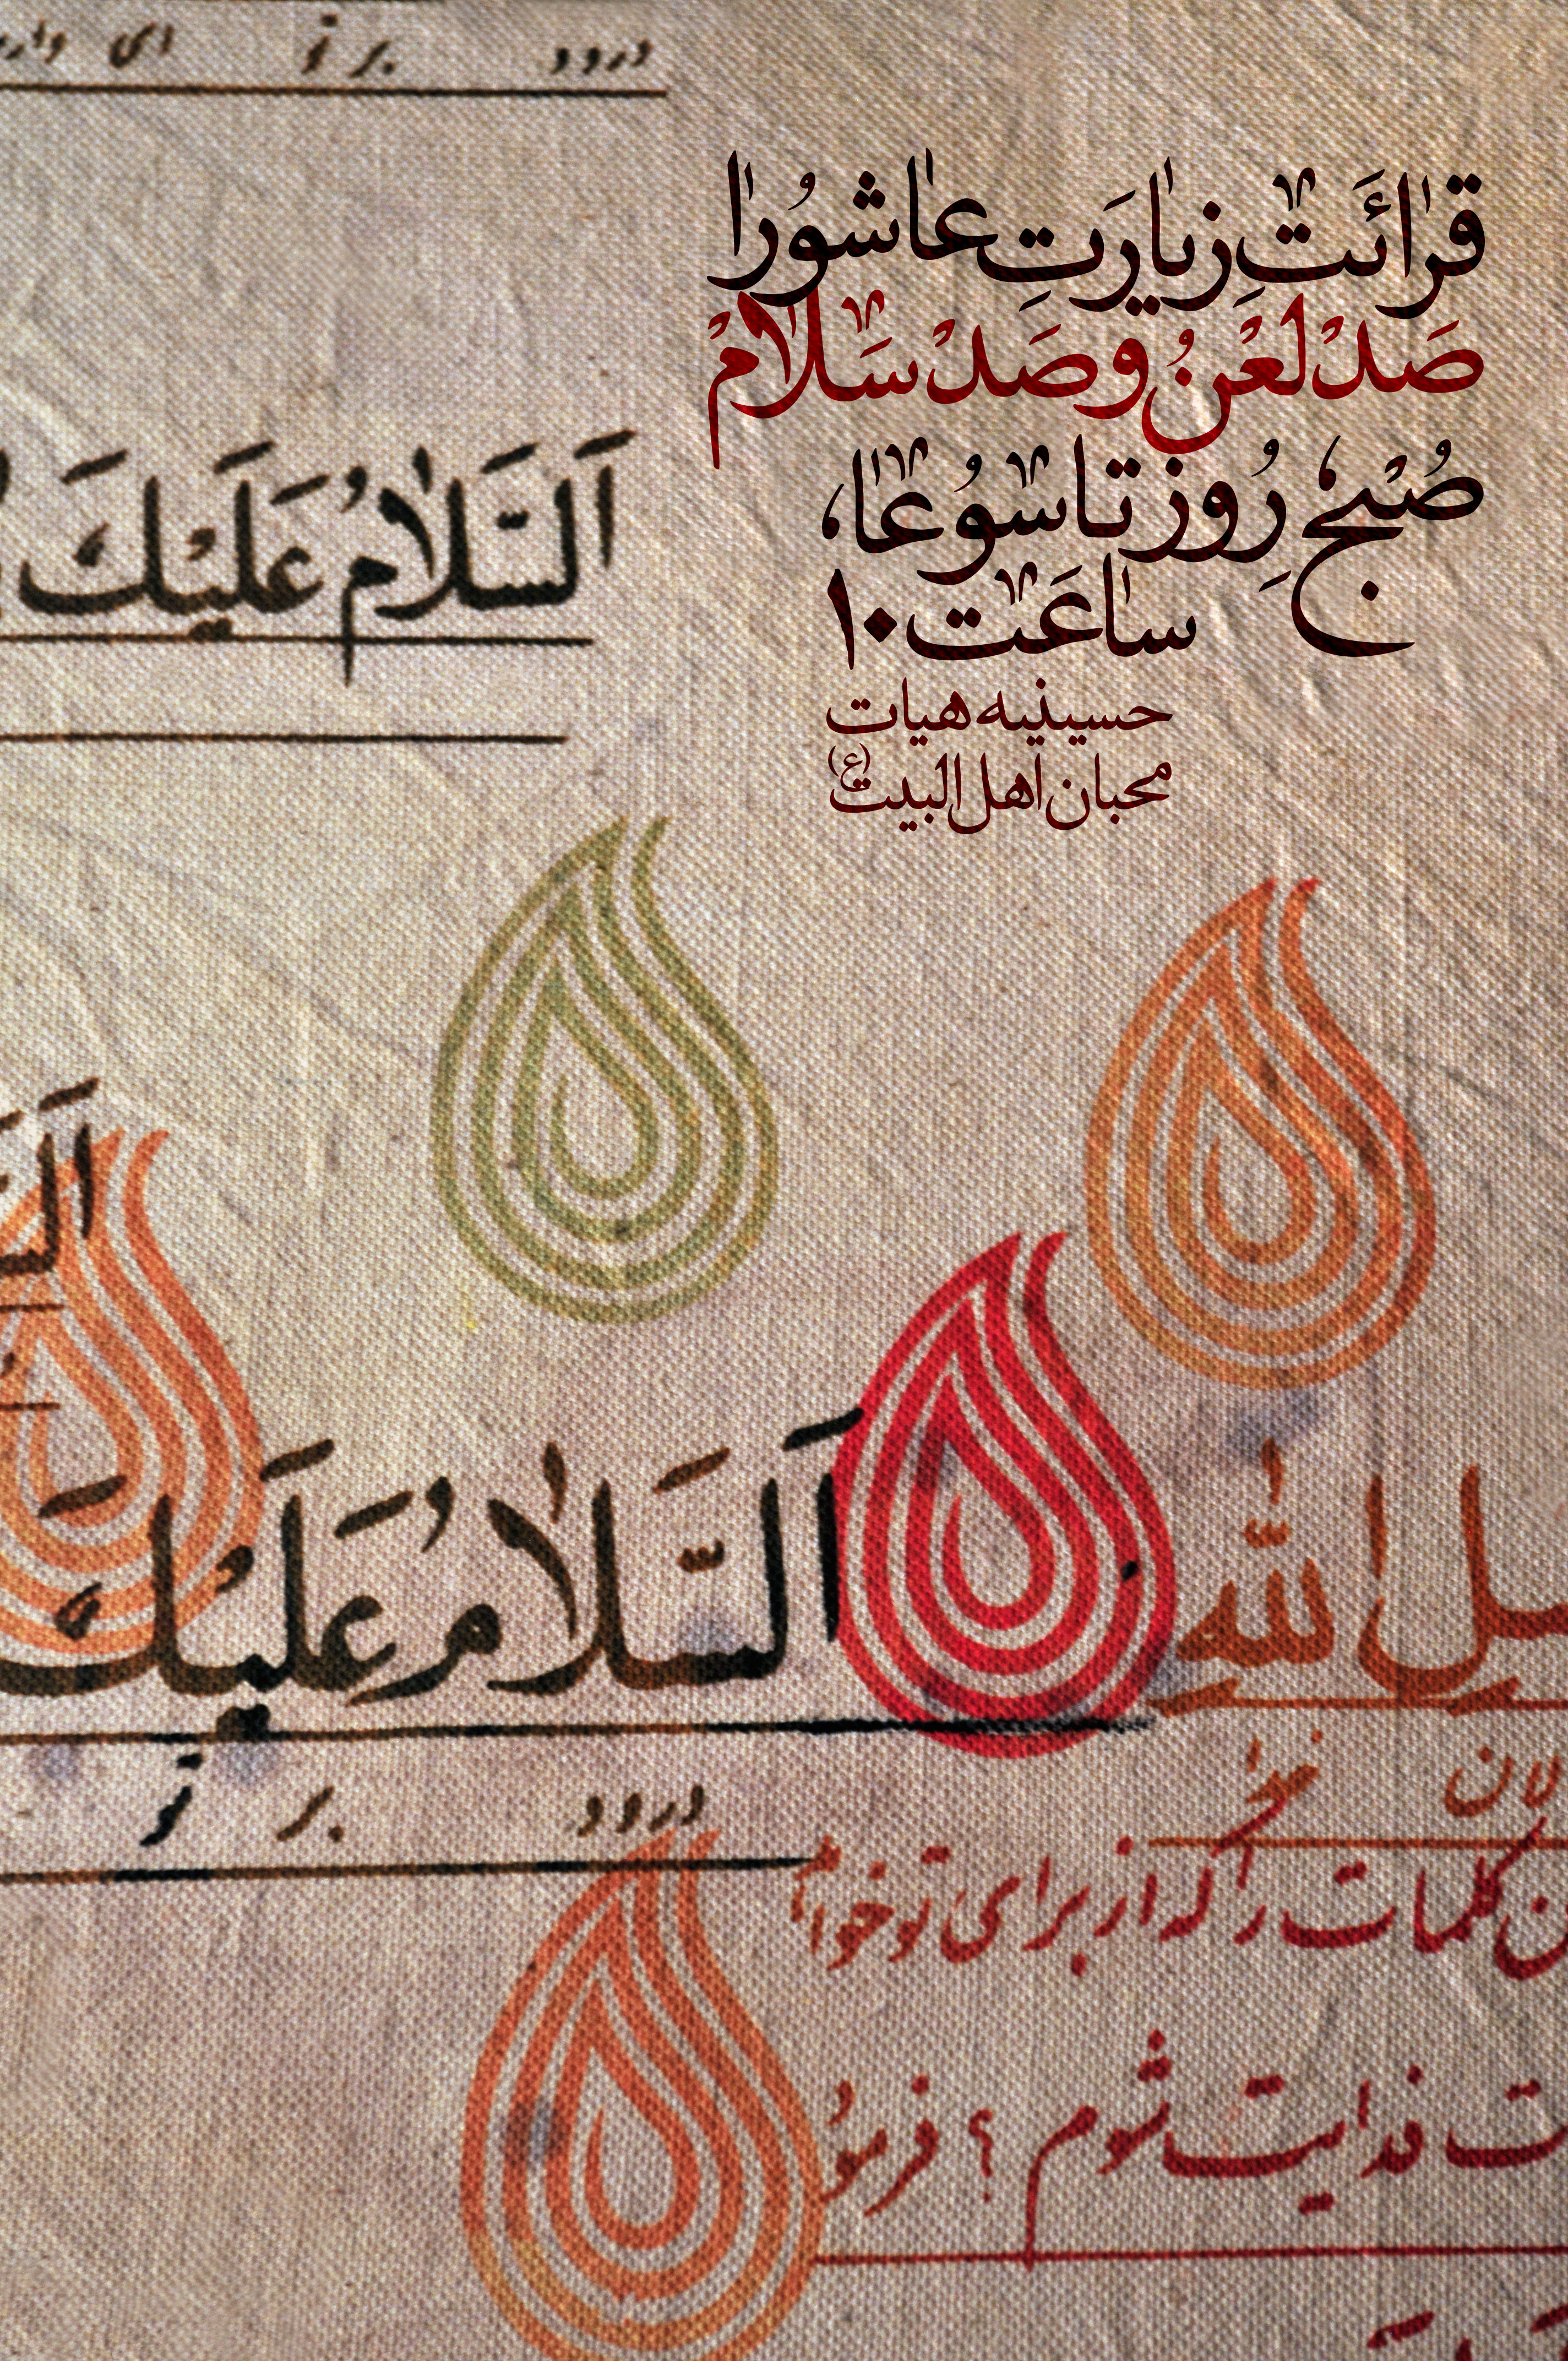 درود بر تو ای
قرٰائَتِ زیٰارَتِ عٰاشُورٰا
صَدْ لَعْنُ و صَدْ سَلاٰمْ
صُبْحِ رُوزِ تاسُوعٰا،
سٰاعَت ۱۰
حسینیه هیات
محبان اهل البیت (ع)
اَلسَّلاٰمُ عَلَیْكَ
اللّٰهِ اَلسَّلاٰمُ عَلَیْكَ
خدا
درود بر تو
کلمات را که از برای تو خواندم
فدایت شوم ؟ فرمود